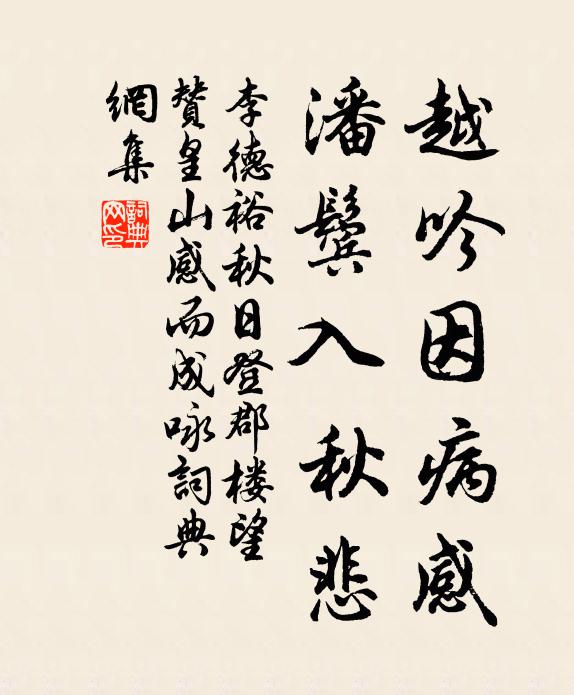 越吟因病感
潘鬓入秋悲
李德裕秋日登郡楼望
赞皇山感而成咏詞典
網集
詞典网印